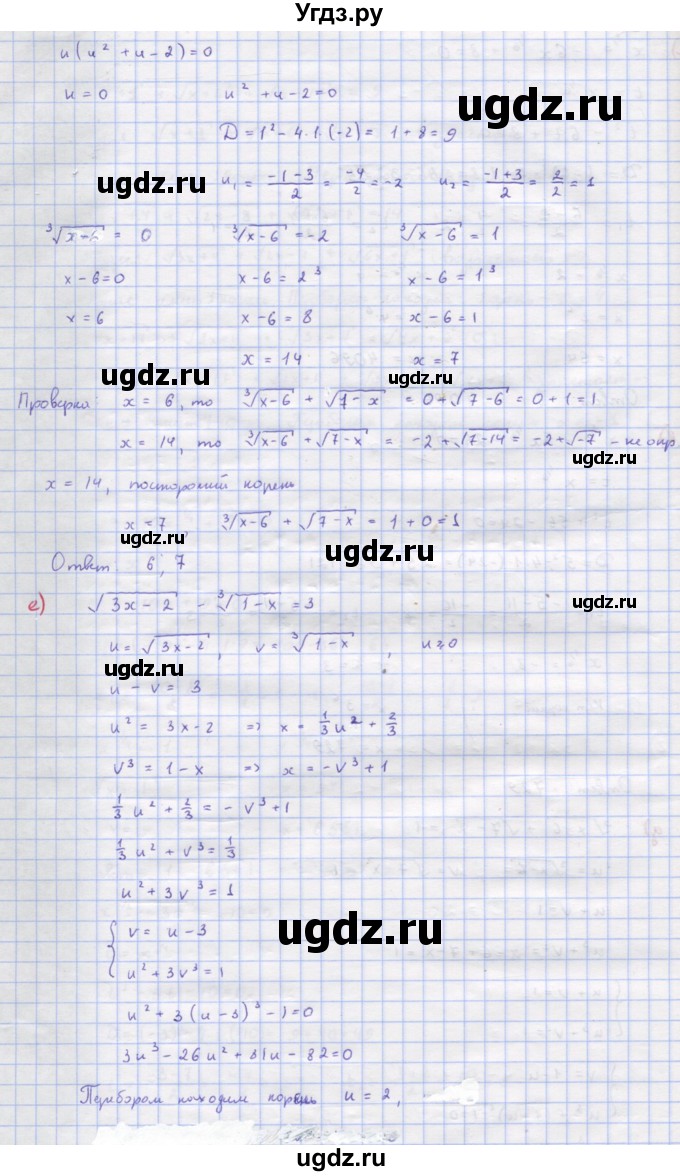 Угдз.ру
u(u² + u - 2) = 0
u = 0 u² + u - 2 = 0
ugdz.ru
D = 1² - 4·1·(-2) = 1 + 8 = 9
ugdz.ru
u₁ = (-1-3)/2 = -4/2 = -2 u₂ = (-1+3)/2 = 2/2 = 1
∛(x-6) = 0 ∛(x-6) = -2 ∛(x-6) = 1
x - 6 = 0 x - 6 = 2³ x - 6 = 1³
x = 6 x - 6 = 8 x - 6 = 1
x = 14 x = 7
ugdz.ru ugdz.ru
Проверка: x = 6, то ∛(x-6) + √(7-x) = 0 + √(7-6) = 0 + 1 = 1
x = 14, то ∛(x-6) + √(7-x) = -2 + √(7-14) = -2 + √-7 - не опр.
ugdz.ru
x = 14, посторонний корень
x = 7, ∛(x-6) + √(7-x) = 1 + 0 = 1
ugdz.ru ugdz.ru
Ответ: 6; 7
е) √(3x-2) - ∛(1-x) = 3
ugdz.ru
u = √(3x-2), v = ∛(1-x), u ≥ 0
ugdz.ru
u - v = 3
u² = 3x - 2 => x = 1/3 u² + 2/3
v³ = 1 - x => x = -v³ + 1
ugdz.ru
1/3 u² + 2/3 = -v³ + 1
1/3 u² + v³ = 1/3
u² + 3v³ = 1
{ v = u - 3
ugdz.ru
u² + 3v³ = 1
u² + 3(u-3)³ - 1 = 0
3u³ - 26u² + 81u - 82 = 0
Перебором находим корень u = 2,
ugdz.ru